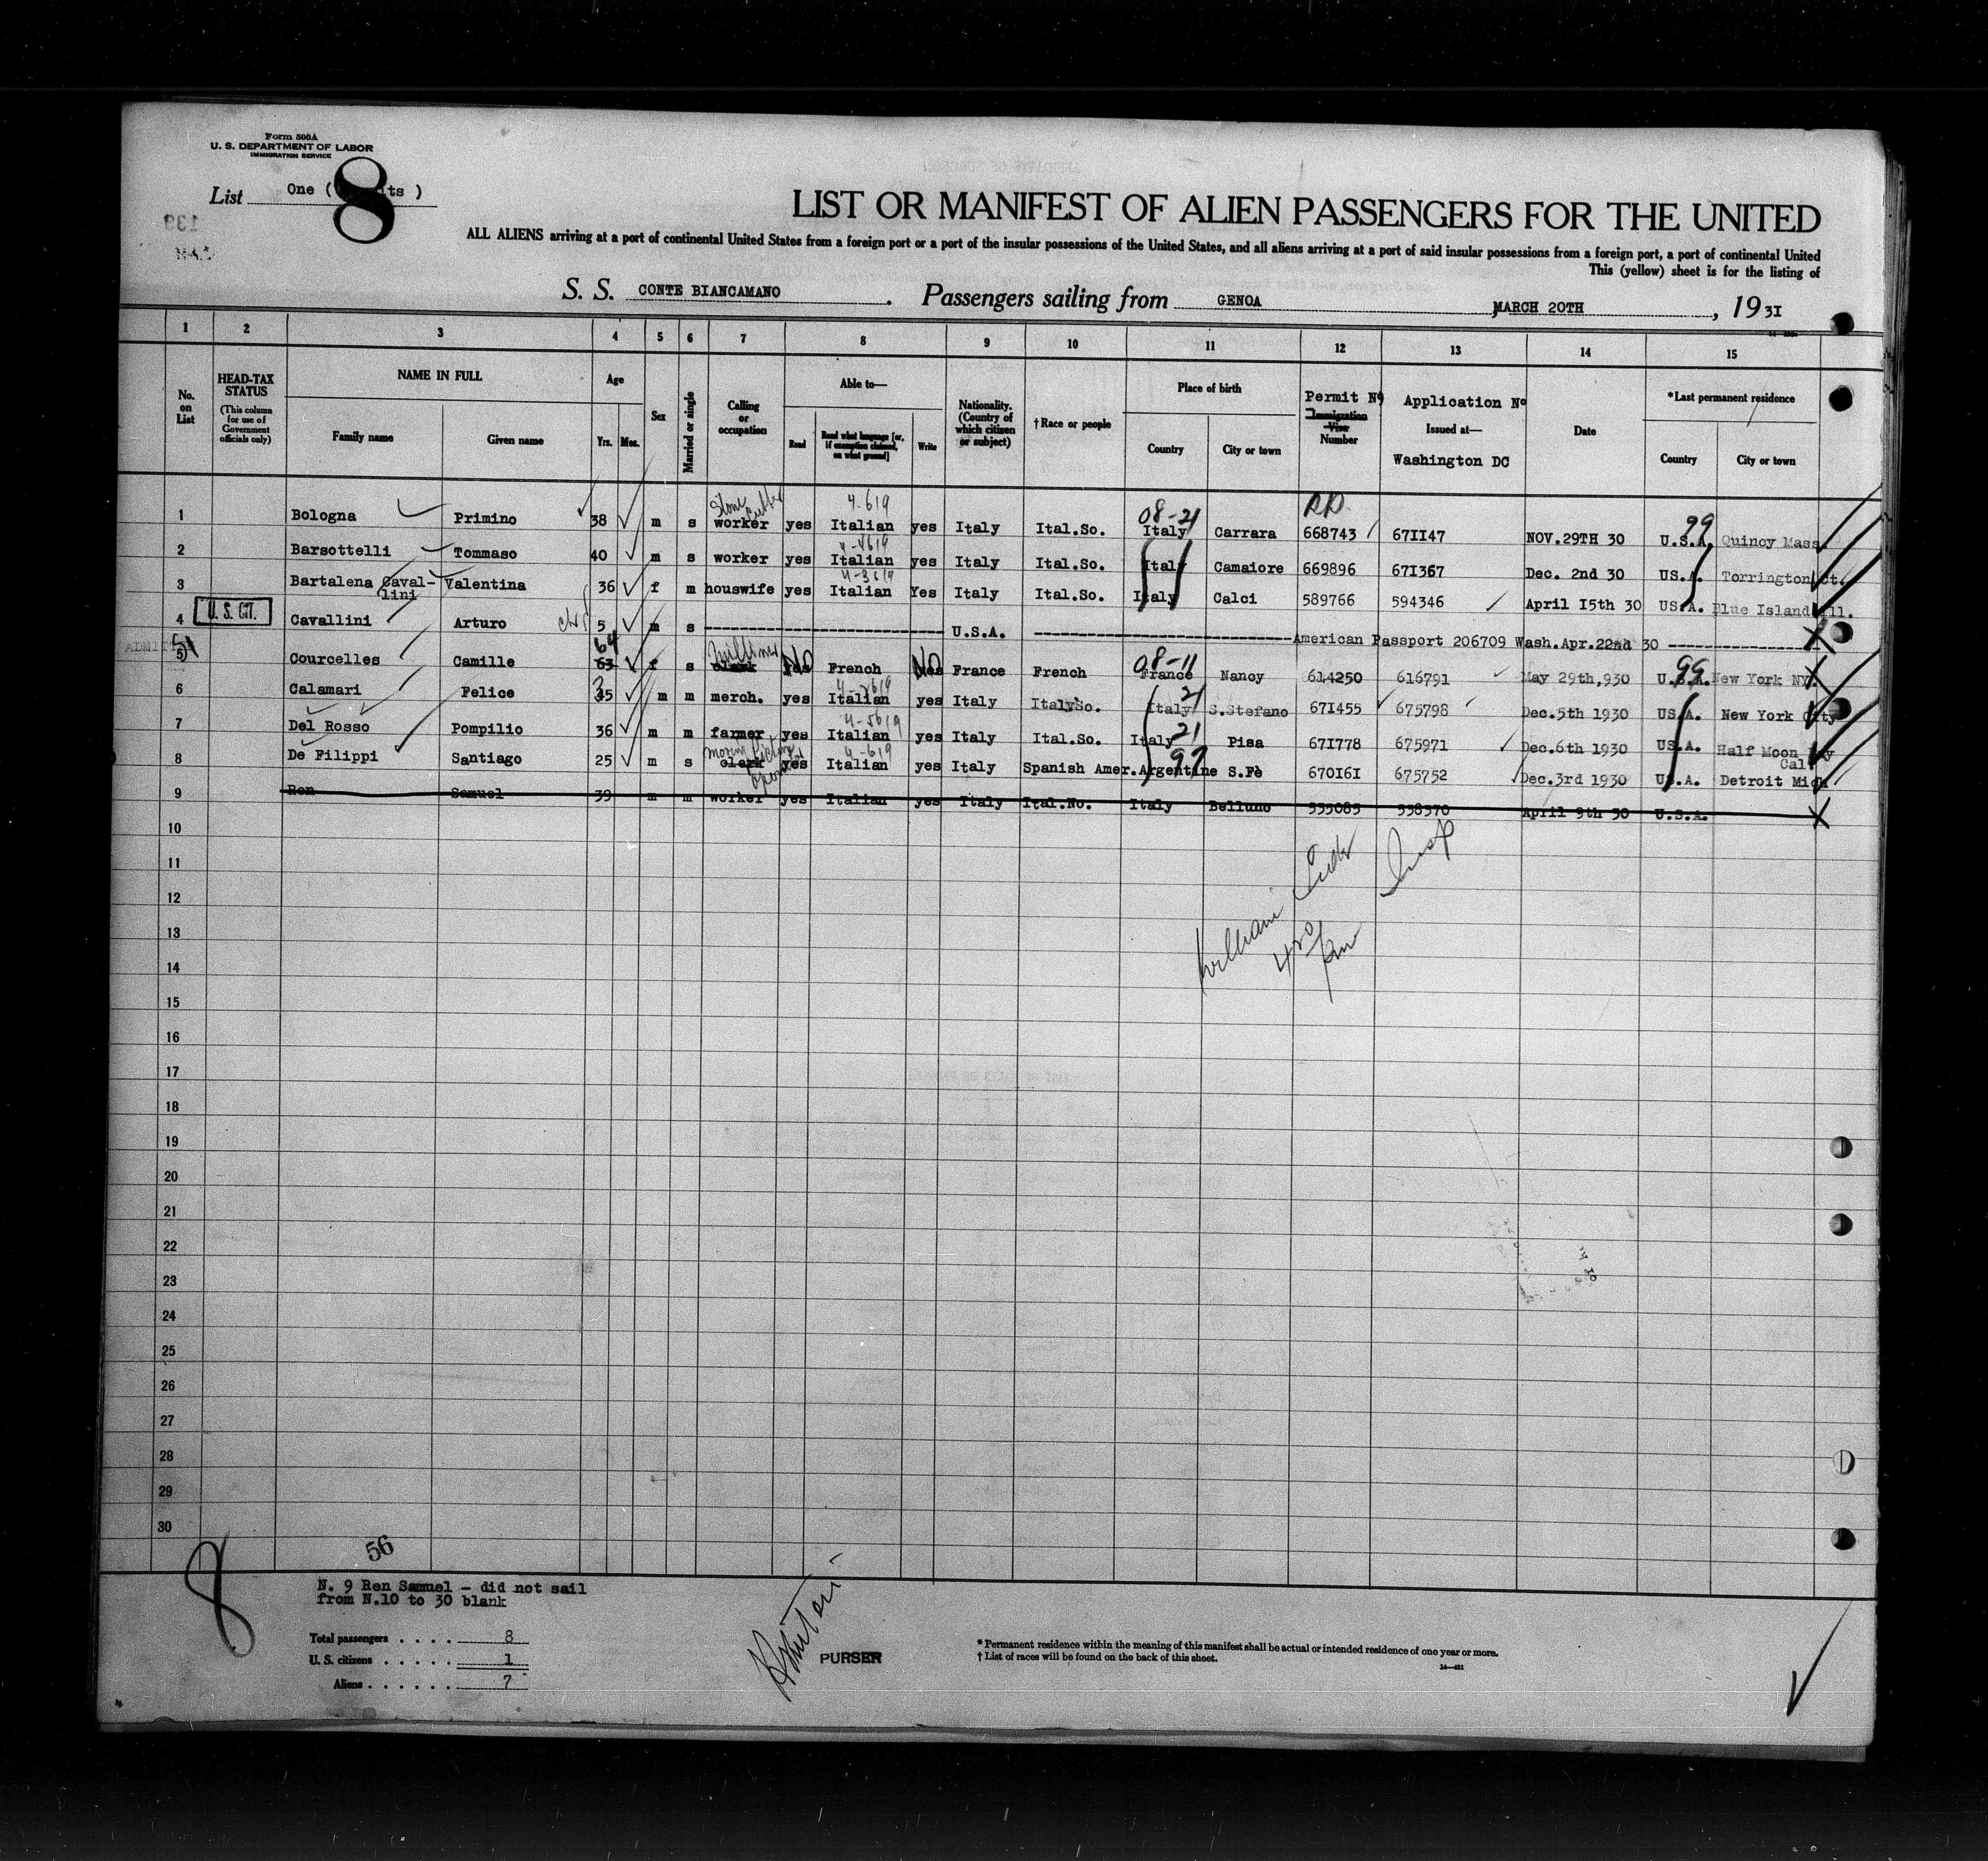 Form 500A
U. S. DEPARTMENT OF LABOR
IMMIGRATION SERVICE
8
List One ( its )
139
LIST OR MANIFEST OF ALIEN PASSENGERS FOR THE UNITED
ALL ALIENS arriving at a port of continental United States from a foreign port or a port of the insular possessions of the United States, and all aliens arriving at a port of said insular possessions from a foreign port, a port of continental United
This (yellow) sheet is for the listing of
S. S. CONTE BIANCAMANO . Passengers sailing from GENOA MARCH 20TH , 1931
1 2 3 4 5 6 7 8 9 10 11 12 13 14 15
No. on List
HEAD-TAX STATUS (This column for use of Government officials only)
NAME IN FULL
Family name Given name
Age
Yrs. Mos.
Sex
Married or single
Calling or occupation
Able to—
Read Read what language [or, if exemption claimed, on what ground] Write
Nationality. (Country of which citizen or subject)
†Race or people
Place of birth
Country City or town
Permit Nº Immigration Visa Number
Application Nº Issued at— Washington DC
Date
*Last permanent residence
Country City or town
1 Bologna Primino 38 m s Stone Cutter worker yes 4-619 Italian yes Italy Ital.So. 08-21 Italy Carrara 668743 671147 NOV.29TH 30 99 U.S.A. Quincy Mass.
2 Barsottelli Tommaso 40 m s worker yes Italian yes Italy Ital.So. Italy Camaiore 669896 671367 Dec. 2nd 30 US.A. Torrington Ct.
3 Bartalena Caval-lini Valentina 36 f m houswife yes Italian Yes Italy Ital.So. Italy Calci 589766 594346 April 15th 30 US.A. Blue Island Ill.
4 U. S. CIT. Cavallini Arturo 5 m s U.S.A. American Passport 206709 Wash.Apr.22nd 30
ADMIT
5 Courcelles Camille 64 63 f s Milliner clerk No yes French No yes France French 08-11 France Nancy 614250 616791 May 29th,930 99 U.S.A. New York NY.
6 Calamari Felice 35 m m merch. yes Italian yes Italy ItalySo. 21 Italy S.Stefano 671455 675798 Dec.5th 1930 US.A. New York City
7 Del Rosso Pompilio 36 m m farmer yes Italian yes Italy Ital.So. 21 Italy Pisa 671778 675971 Dec.6th 1930 US.A. Half Moon Bay Cal.
8 De Filippi Santiago 25 m s clerk yes 4-619 Italian yes Italy Spanish Amer. 97 Argentine S.Fè 670161 675752 Dec.3rd 1930 U.S.A. Detroit Mich
9 Ren Samuel 39 m m worker yes Italian yes Italy Ital.No. Italy Belluno 555085 558370 April 9th 30 U.S.A.
10
11
12
13
14
15
16
17
18
19
20
21
22
23
24
25
26
27
28
29
30
William
8
56
N. 9 Ren Samuel - did not sail
from N.10 to 30 blank
Total passengers . . . . 8
U. S. citizens . . . . . 1
Aliens . . . . . . 7
PURSER
* Permanent residence within the meaning of this manifest shall be actual or intended residence of one year or more.
† List of races will be found on the back of this sheet.